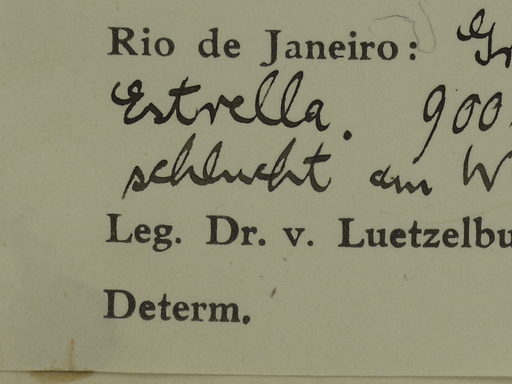 Rio de Janeiro: Gr
Estrella. 900
schlucht am W
Leg. Dr. v. Luetzelbu
Determ.